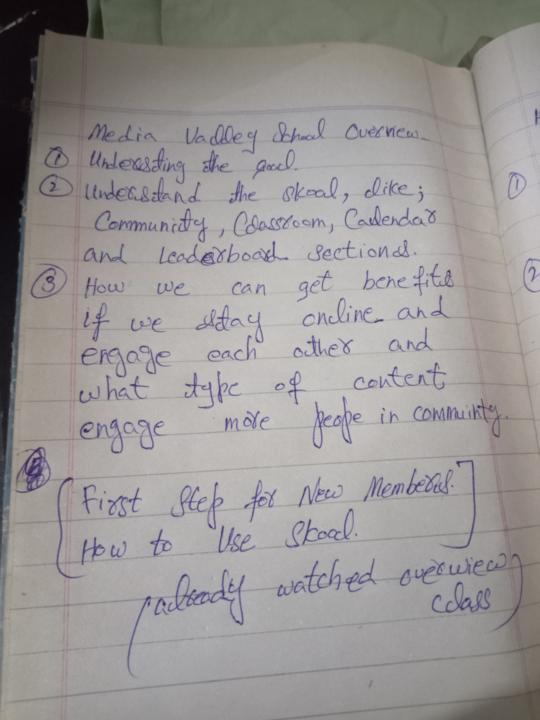 Media Valley School Overview
① Understing the goal.
② Understand the skool, like;
Community, Classroom, Calendar
and leaderboard sections.
③ How we can get benefits
if we stay online and
engage each other and
what type of content
engage more peope in commuinty.
[First Step for New Members.
How to Use Skool.]
(already watched overview
class)
①
②